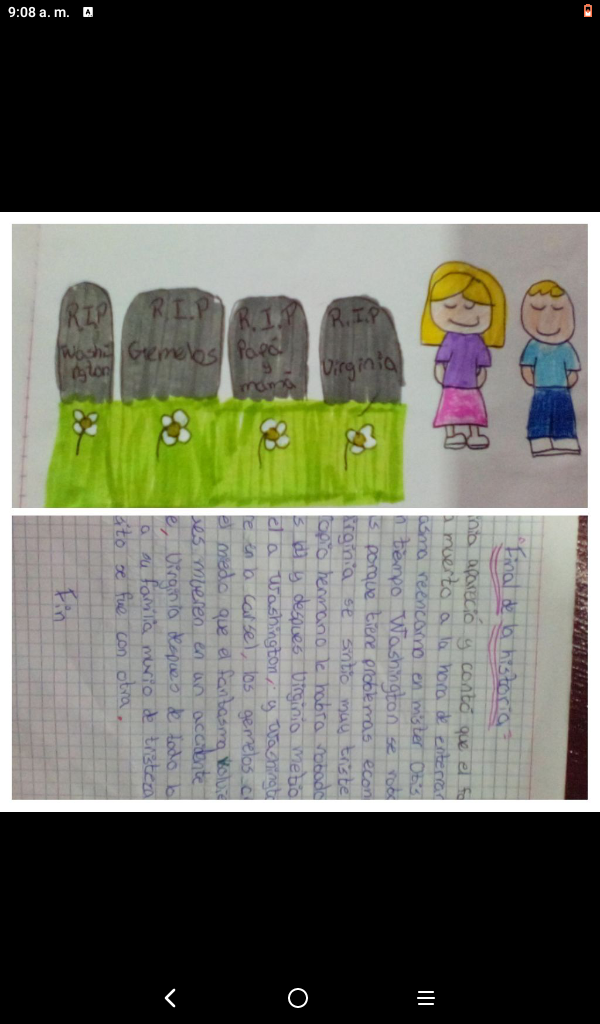 9:08 a. m.
A
R.I.P
Washi
ngton
R.I.P
Gemelos
R.I.P
Papá
y
mamá
R.I.P
Virginia
"Final de la historia"
inia apareció y contó que el fa
muerto a la hora de enterrar
asma reencarno en mister Otis
n tiempo Washington se robo
s porque tiene problemas econ
irginia se sintio muy triste
opio hermano le habia robado
y despues Virginia metio
el a Washington, y Washingt
e en la carsel, los gemelos c
el miedo que el fantasma volvie
ses mueren en un accidente
e, Virginia despues de todo lo
a su familia murio de tristeza
ito se fue con otra.
Fin